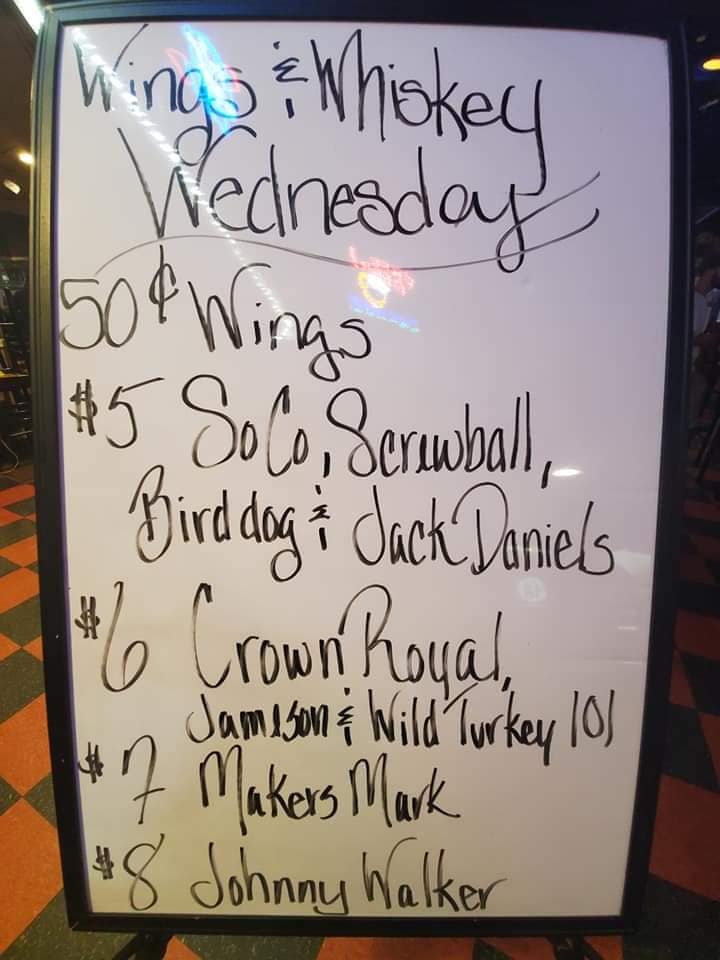 Wings & Whiskey
Wednesday
50¢ Wings
$5 SoCo, Screwball,
Birddog & Jack Daniels
$6 Crown Royal,
Jameson & Wild Turkey 101
$7 Makers Mark
$8 Johnny Walker